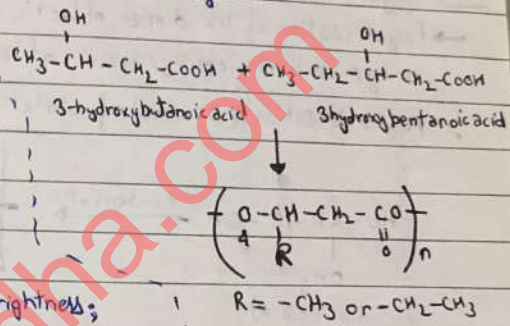 OH
OH
CH3-CH-CH2-COOH + CH3-CH2-CH-CH2-COOH
3-hydroxybutanoic acid 3hydroxypentanoic acid
( O-CH-CH2-CO )n
R O
R = -CH3 or -CH2-CH3
rightness;
dha.com